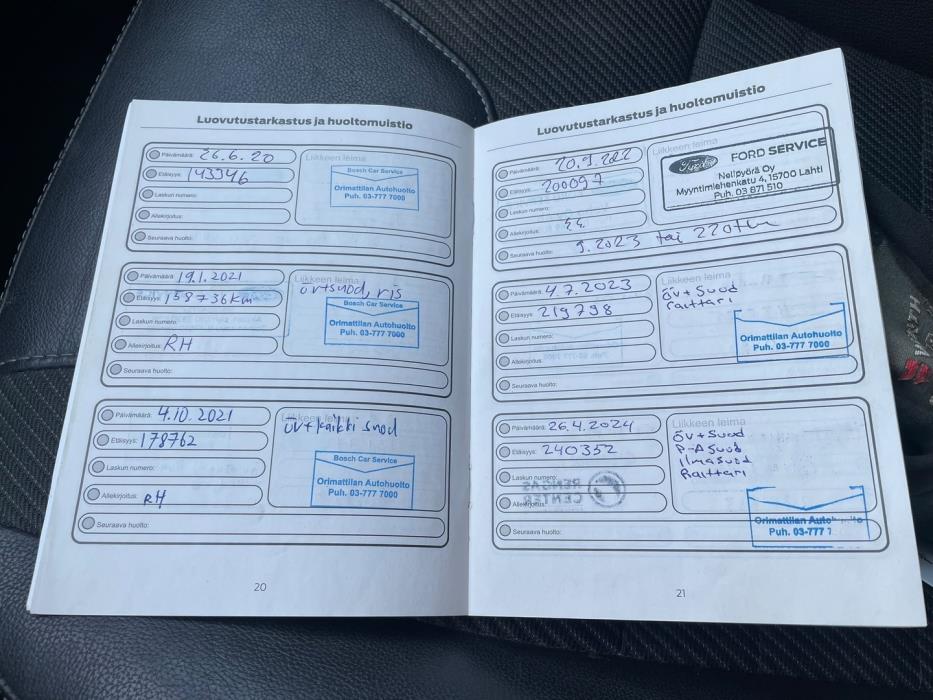 Luovutustarkastus ja huoltomuistio
Päivämäärä: 26.6.20
Etäisyys: 143346
Laskun numero:
Allekirjoitus:
Seuraava huolto:
Liikkeen leima
Bosch Car Service
Orimattilan Autohuolto
Puh. 03-777 7000
Päivämäärä: 19.1.2021
Etäisyys: 158736km
Laskun numero:
Allekirjoitus: RH
Seuraava huolto:
Liikkeen leima
öv+suod, ris
Bosch Car Service
Orimattilan Autohuolto
Puh. 03-777 7000
Päivämäärä: 4.10.2021
Etäisyys: 178762
Laskun numero:
Allekirjoitus: RH
Seuraava huolto:
Liikkeen leima
öv+kaikki suod
Bosch Car Service
Orimattilan Autohuolto
Puh. 03-777 7000
20
Luovutustarkastus ja huoltomuistio
Päivämäärä:
Etäisyys: 200097
Laskun numero:
Allekirjoitus:
Seuraava huolto: 9.2023 tai 220tkm
Liikkeen leima
Ford FORD SERVICE
Nelipyörä Oy
Myyntimiehenkatu 4, 15700 Lahti
Puh. 03 871 510
Päivämäärä: 4.7.2023
Etäisyys: 219798
Laskun numero:
Allekirjoitus:
Seuraava huolto:
Liikkeen leima
öv+suod
Raittari
Orimattilan Autohuolto
Puh. 03-777 7000
Päivämäärä: 26.4.2024
Etäisyys: 240352
Laskun numero:
Allekirjoitus:
Seuraava huolto:
RENGAS
CENTER
Liikkeen leima
öv+suod
P-Asuod
ilmasuod
Raittari
Orimattilan Auto
Puh. 03-777 7
21